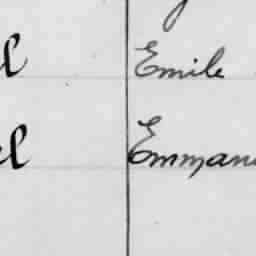 l Emile
el Emman